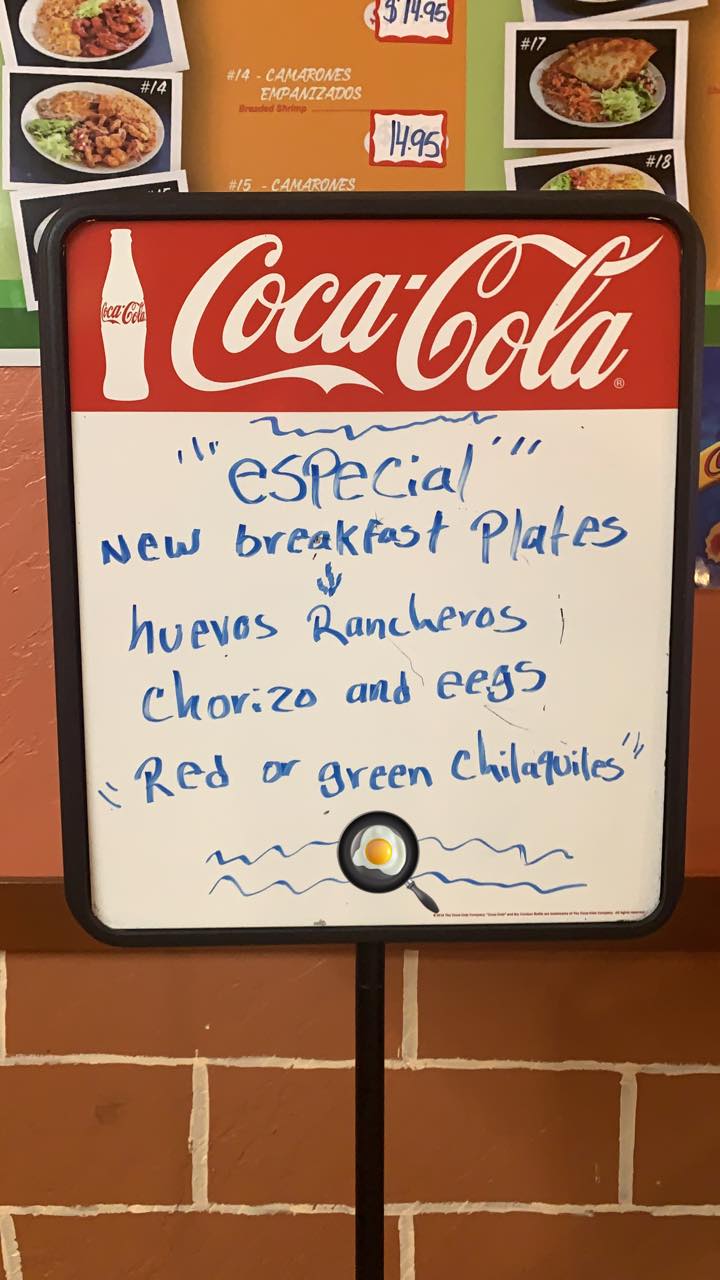 $14.95
#14 - CAMARONES
EMPANIZADOS
Breaded Shrimp
14.95
#15 - CAMARONES
#14
#17
#18
Coca-Cola
Coca-Cola®
"especial"
New breakfast Plates
huevos Rancheros
Chorizo and eegs
"Red or green Chilaquiles"